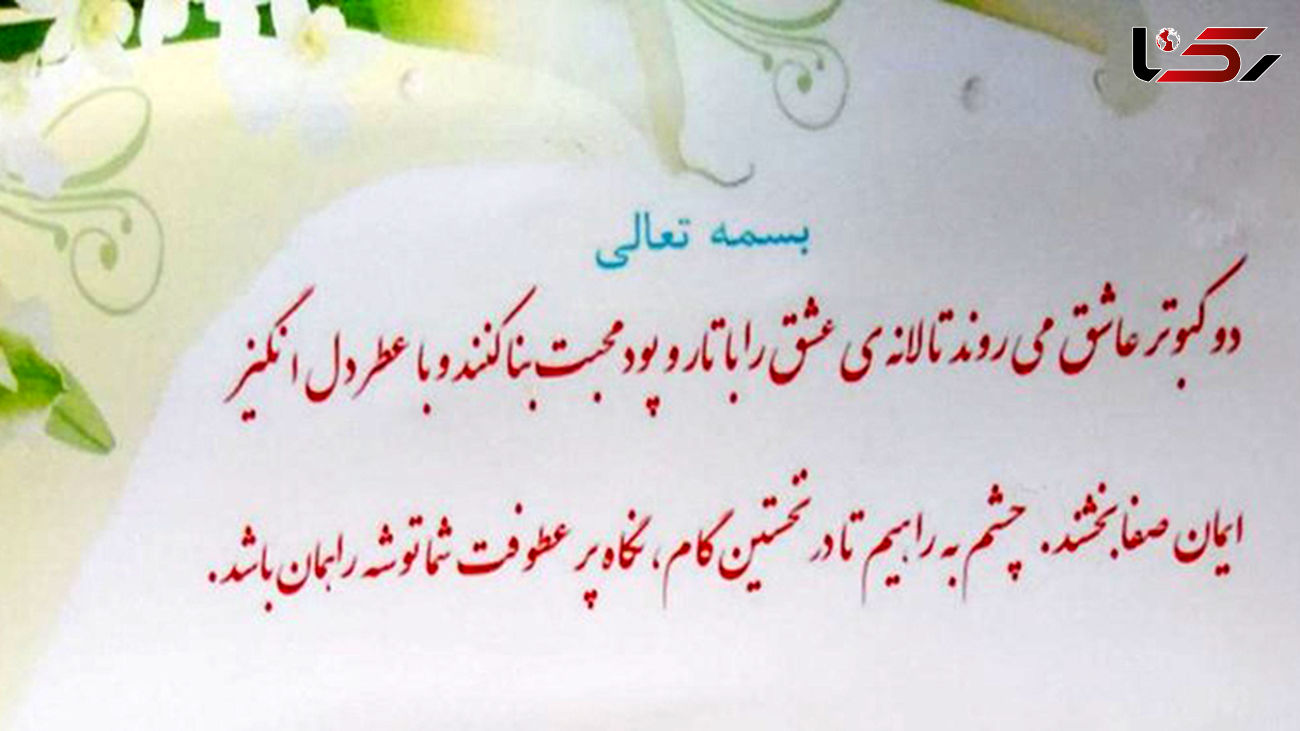 رکنا
بسمه تعالی
دو کبوتر عاشق می روند تا لانه ی عشق را با تار و پود محبت بنا کنند و با عطر دل انگیز
ایمان صفا بخشند. چشم به راهیم تا در نخستین گام، نگاه پر عطوفت شما توشه راهمان باشد.